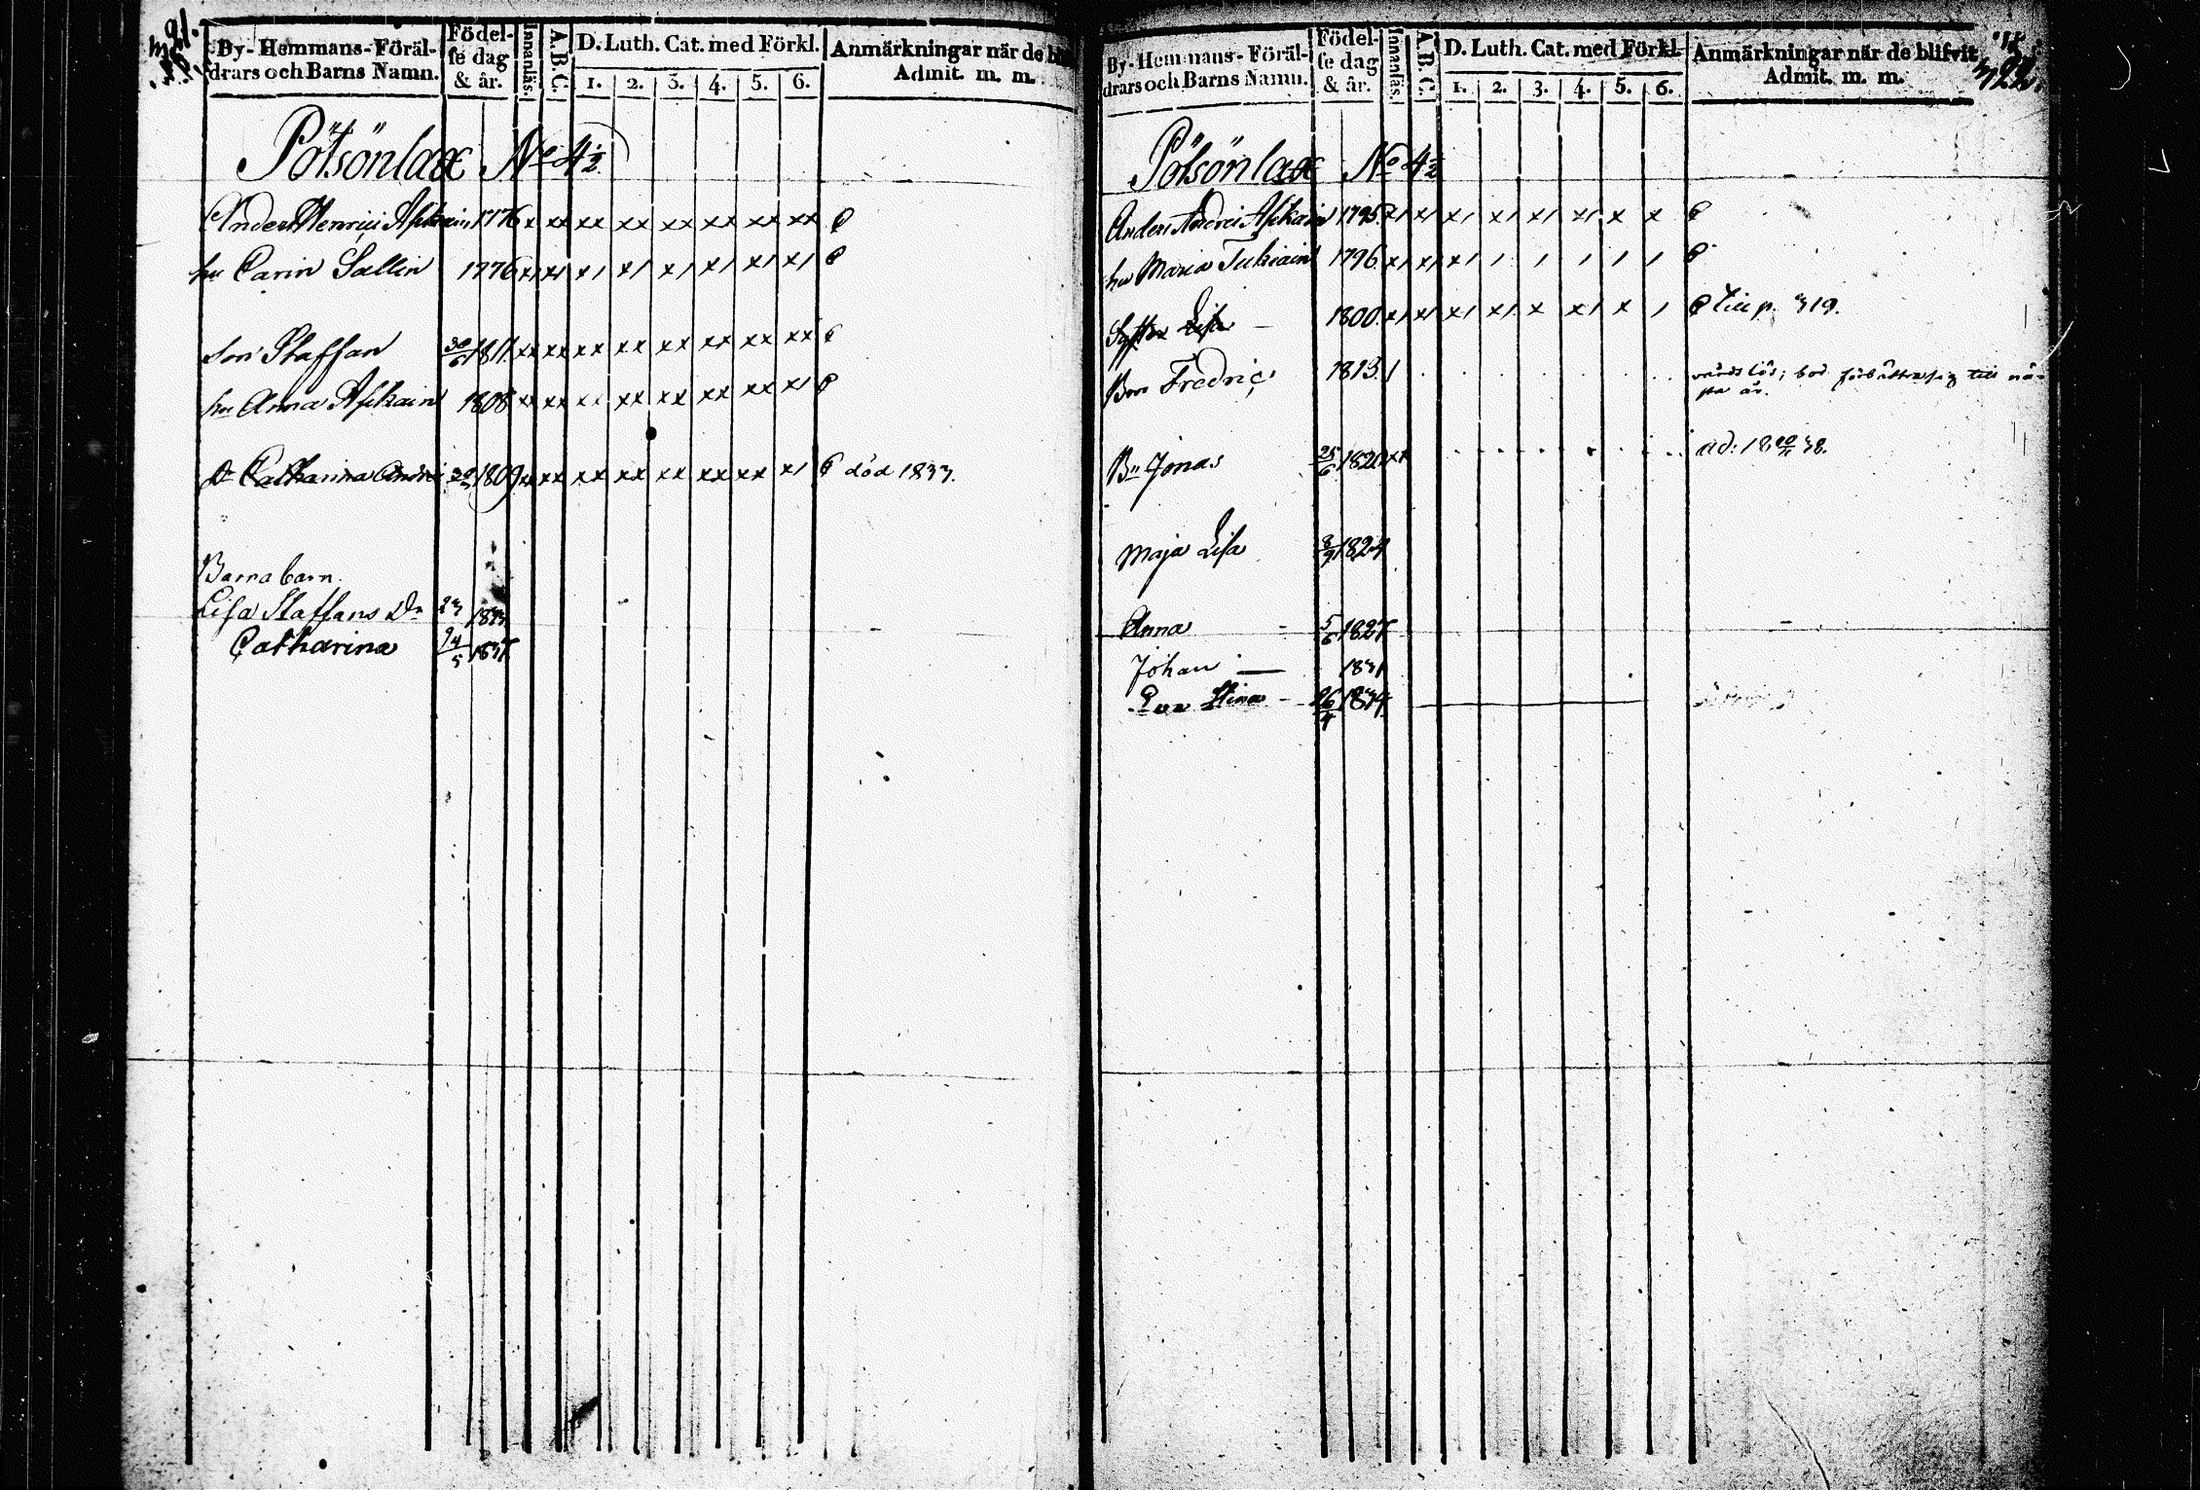 By-Hemmans-Föräl-
drars och Barns Namn.
Födel-
se dag
& år.
Innanläs.
A.B.C.
D. Luth. Cat. med Förkl.
1. 2. 3. 4. 5. 6.
Anmärkningar när de
Admit. m. m.
Pötsönlax No 4½
Anders Henrici Asikain 1776 x xx xx xx xx xx xx xx
hu Carin Sallin 1776 x1 x1 x1 x1 x1 x1 x1 x1
Son Staffan 30/6 1811 xx xx xx xx xx xx xx xx
hu Anna Asikain 1808 xx xx xx xx xx xx xx x1
Dr Catharina 1809 xx xx xx xx xx xx xx x1 död 1833.
Barnabarn.
Lisa Staffans Dr 23 1833
Catharina 24/5 1837
By-Hemmans-Föräl-
drars och Barns Namn.
Födel-
se dag
& år.
Innanläs.
A.B.C.
D. Luth. Cat. med Förkl.
1. 2. 3. 4. 5. 6.
Anmärkningar när de blifvit
Admit. m. m.
322.
Pötsönlax No 4½
Anders Andrei Asikain 1795 x1 x1 x1 x1 x1 x1 x x
hu Maria Tukiain 1796 x1 x1 x1 1 1 1 1 1
Syster Lisa 1800 x1 x1 x1 x1 x x1 x 1 till p. 319.
Bror Fredric 1813 1 vårdslös; bör förbättra sig till nä-
sta år.
Br Jonas 25/6 1820 xx ad: 18 38.
Maja Lisa 8/9 1824
Anna 5/6 1827
Johan 1831
Eva Stina 26/4 1834